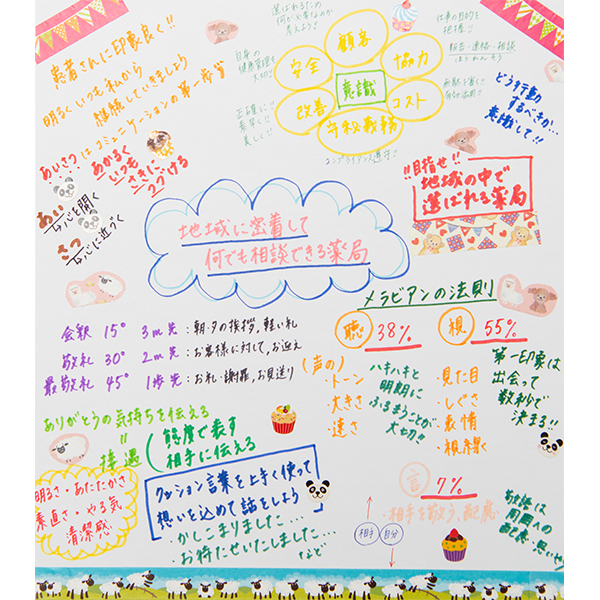 患者さんに印象良く!!
明るくいつも私から
継続していきましょう
あいさつはコミュニケーションの第一歩
あかるく
いつも
さきに
つづける
あい
心を開く
さつ
心に近づく
選ばれるために
何が必要なのか
考えよう!
自身の
健康管理も
大切!!
正確に!
素早く!
美しく!!
顧客
安全
協力
意識
改善
コスト
守秘義務
コンプライアンス遵守!
仕事の目的を
把握!!
報告・連絡・相談
ほうれんそう
無駄を省く!
有効活用!!
どう行動
するべきか…
意識して!!
!!目指せ!!
地域の中で
選ばれる薬局
地域に密着して
何でも相談できる薬局
会釈 15° 3m先:朝・夕の挨拶,軽い礼
敬礼 30° 2m先:お客様に対して,お迎え
最敬礼 45° 1歩先:お礼・謝罪,お見送り
ありがとうの気持ちを伝える
=
接遇
態度で表す
相手に伝える
明るさ・あたたかさ
素直さ・やる気
清潔感
クッション言葉を上手く使って
想いを込めて話をしよう
・かしこまりました…
・お待たせいたしました…
など
メラビアンの法則
聴 38%
(声の)
・トーン
・大きさ
・速さ
ハキハキと
明朗に
ふるまうことが
大切!!
視 55%
・見た目
・しぐさ
・表情
・視線
第一印象は
出会って
数秒で
決まる!!
言 7%
・相手を敬う、配慮
相手
自分
敬語は
周囲への
配慮・思いやり